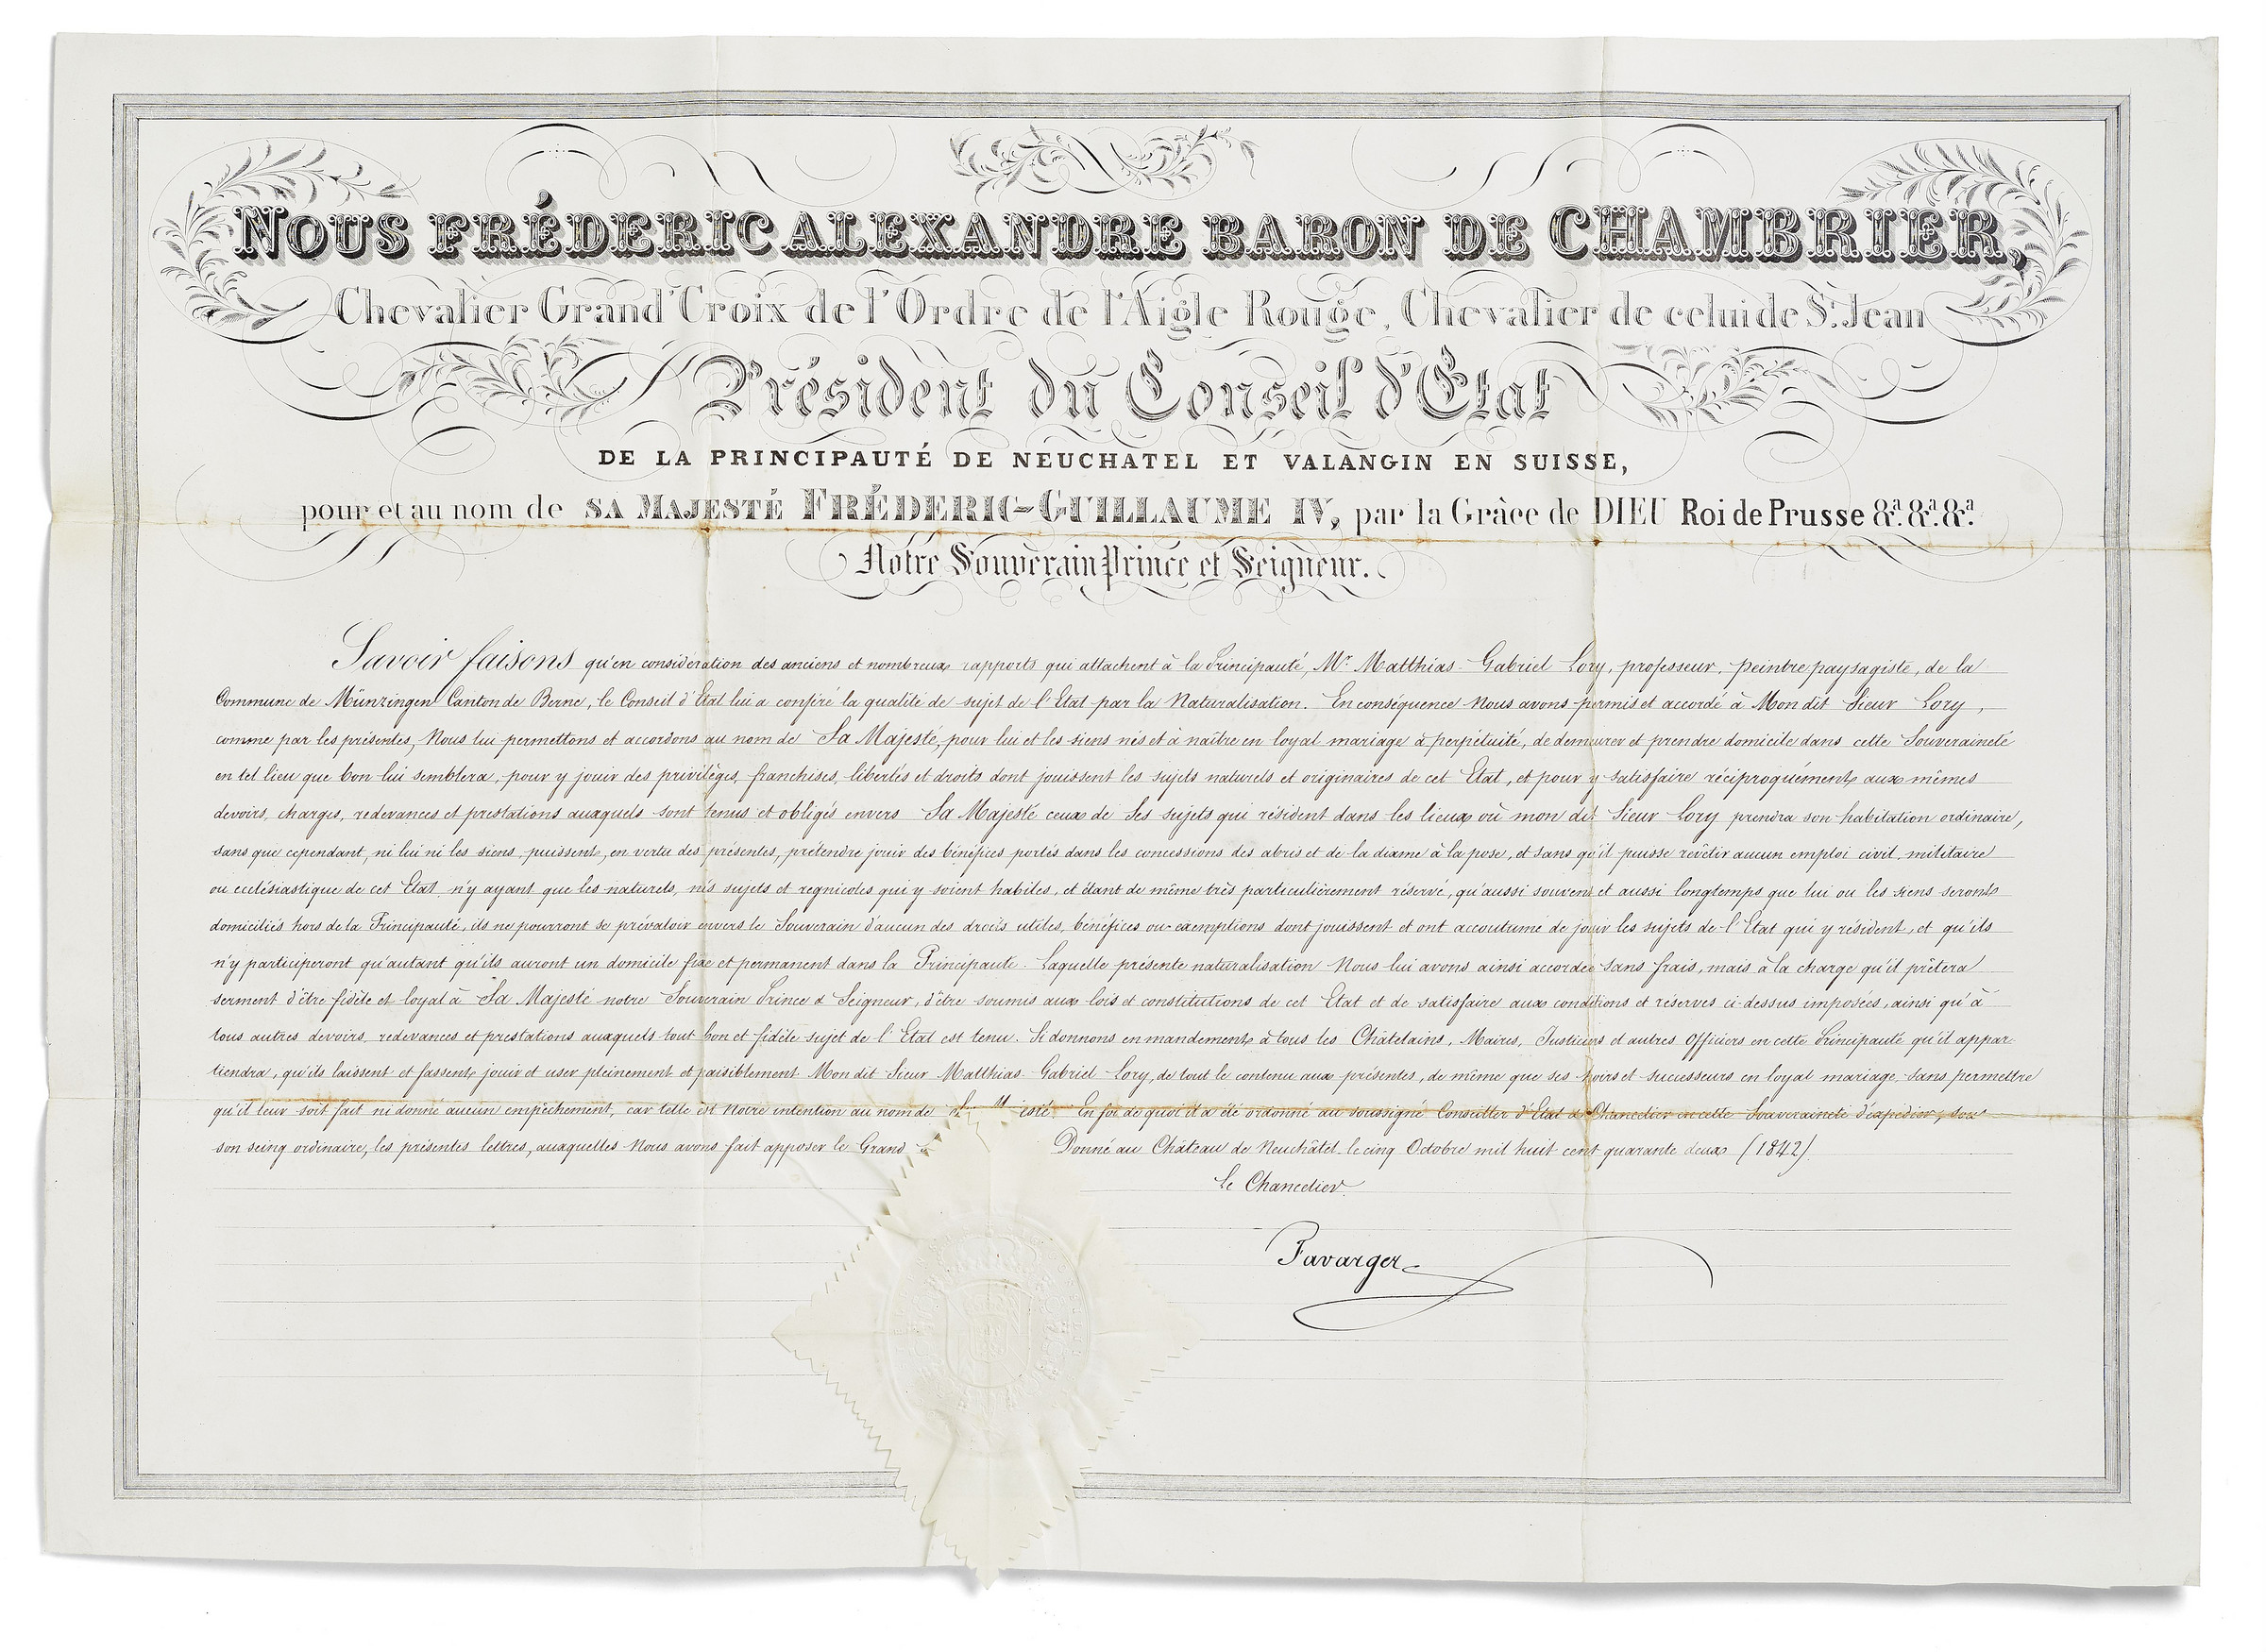 NOUS FRÉDERIC ALEXANDRE BARON DE CHAMBRIER,
Chevalier Grand'Croix de l'Ordre de l'Aigle Rouge, Chevalier de celui de St. Jean
Président du Conseil d'Etat
DE LA PRINCIPAUTÉ DE NEUCHATEL ET VALANGIN EN SUISSE,
pour et au nom de SA MAJESTÉ FRÉDERIC-GUILLAUME IV, par la Grâce de DIEU Roi de Prusse &a. &a. &a.
Notre Souverain Prince et Seigneur.
Savoir faisons qu'en considération des anciens et nombreux rapports qui attachent à la Principauté, Mr. Matthias-Gabriel Lory, professeur, peintre paysagiste, de la
Commune de Münzingen Canton de Berne, le Conseil d'Etat lui a conféré la qualité de sujet de l'Etat par la Naturalisation. En conséquence Nous avons permis et accordé à Mon dit Sieur Lory,
comme par les présentes, Nous lui permettons et accordons au nom de Sa Majesté, pour lui et les siens nés et à naître en loyal mariage à perpétuité, de demeurer et prendre domicile dans cette Souveraineté
en tel lieu que bon lui semblera, pour y jouir des privilèges, franchises, libertés et droits dont jouissent les sujets naturels et originaires de cet Etat, et pour y satisfaire réciproquement aux mêmes
devoirs, charges, redevances et prestations auxquels sont tenus et obligés envers Sa Majesté ceux de Ses sujets qui résident dans les lieux où mon dit Sieur Lory prendra son habitation ordinaire,
sans que cependant, ni lui ni les siens, puissent, en vertu des présentes, prétendre jouir des bénéfices portés dans les concessions des abris et de la dixme à la pose, et sans qu'il puisse revêtir aucun emploi civil, militaire
ou ecclésiastique de cet Etat n'y ayant que les naturels, nés sujets et regnicoles qui y soient habiles, et étant de même très particulièrement réservé, qu'aussi souvent et aussi longtemps que lui ou les siens seront
domiciliés hors de la Principauté, ils ne pourront se prévaloir envers le Souverain d'aucun des droits utiles, bénéfices ou exemptions dont jouissent et ont accoutumé de jouir les sujets de l'Etat qui y résident, et qu'ils
n'y participeront qu'autant qu'ils auront un domicile fixe et permanent dans la Principauté. Laquelle présente naturalisation Nous lui avons ainsi accordée sans frais, mais à la charge qu'il prêtera
serment d'être fidèle et loyal à Sa Majesté notre Souverain Prince & Seigneur, d'être soumis aux lois et constitutions de cet Etat et de satisfaire aux conditions et réserves ci-dessus imposées, ainsi qu'à
tous autres devoirs, redevances et prestations auxquels tout bon et fidèle sujet de l'Etat est tenu. Si donnons en mandement à tous les Châtelains, Maires, Justiciers et autres Officiers en cette Principauté qu'il appar-
tiendra, qu'ils laissent et fassent jouir et user pleinement et paisiblement Mon dit Sieur Matthias-Gabriel Lory, de tout le contenu aux présentes, de même que ses hoirs et successeurs en loyal mariage, sans permettre
qu'il leur soit fait ni donné aucun empêchement, car telle est Notre intention au nom de En foi de quoi il a été ordonné au soussigné Conseiller d'Etat & Chancelier en cette Souveraineté d'expédier, sous
son seing ordinaire, les présentes lettres, auxquelles Nous avons fait apposer le Grand Donné au Château de Neuchâtel le cinq Octobre mil huit cent quarante deux (1842).
Le Chancelier
Favarger